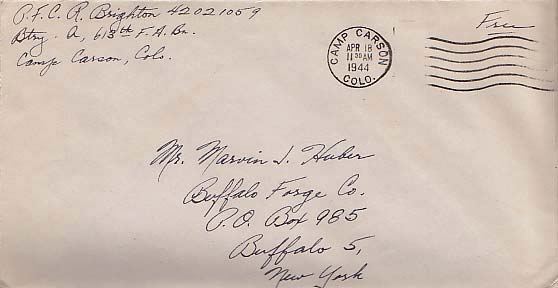 P.F.C. R. Brighton 42021059
Btry. A, 613th F.A. Bn.
Camp Carson, Colo.
Free
CAMP CARSON
APR 18
11 30 AM
1944
COLO.
Mr. Marvin J. Huber
Buffalo Forge Co.
P.O. Box 985
Buffalo 5,
New York